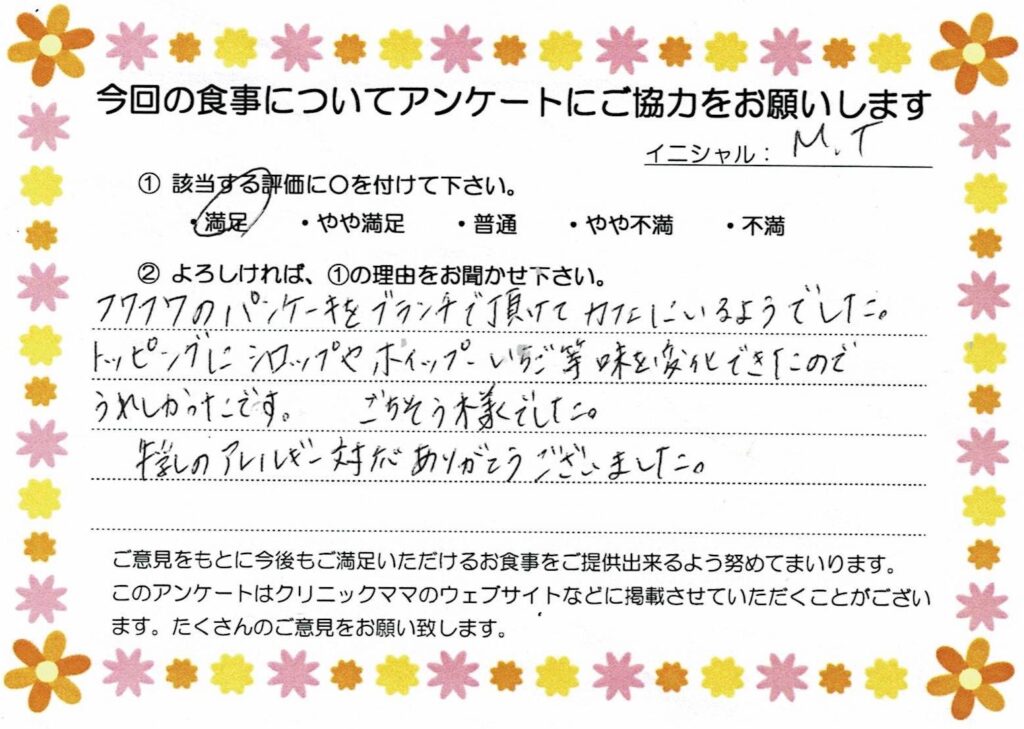 今回の食事についてアンケートにご協力をお願いします
イニシャル： M.T
① 該当する評価に〇を付けて下さい。
・満足 ・やや満足 ・普通 ・やや不満 ・不満
② よろしければ、①の理由をお聞かせ下さい。
フワフワのパンケーキをブランチで頂けてカフェにいるようでした。
トッピングにシロップやホイップーいちご等味を変化できたので
うれしかったです。 ごちそう様でした。
牛乳のアレルギー対応ありがとうございました。
ご意見をもとに今後もご満足いただけるお食事をご提供出来るよう努めてまいります。
このアンケートはクリニックママのウェブサイトなどに掲載させていただくことがござい
ます。たくさんのご意見をお願い致します。